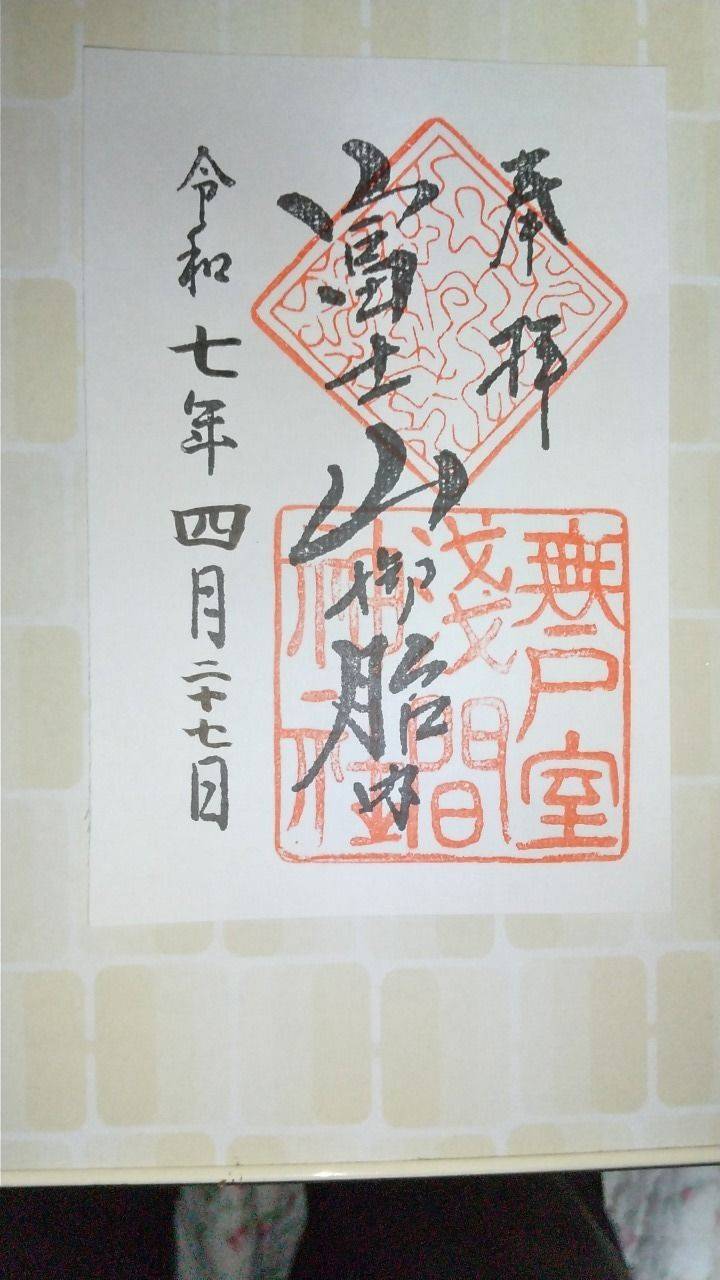 奉拝
富士山御胎内
令和七年四月二十七日
無戸室
浅間
神社